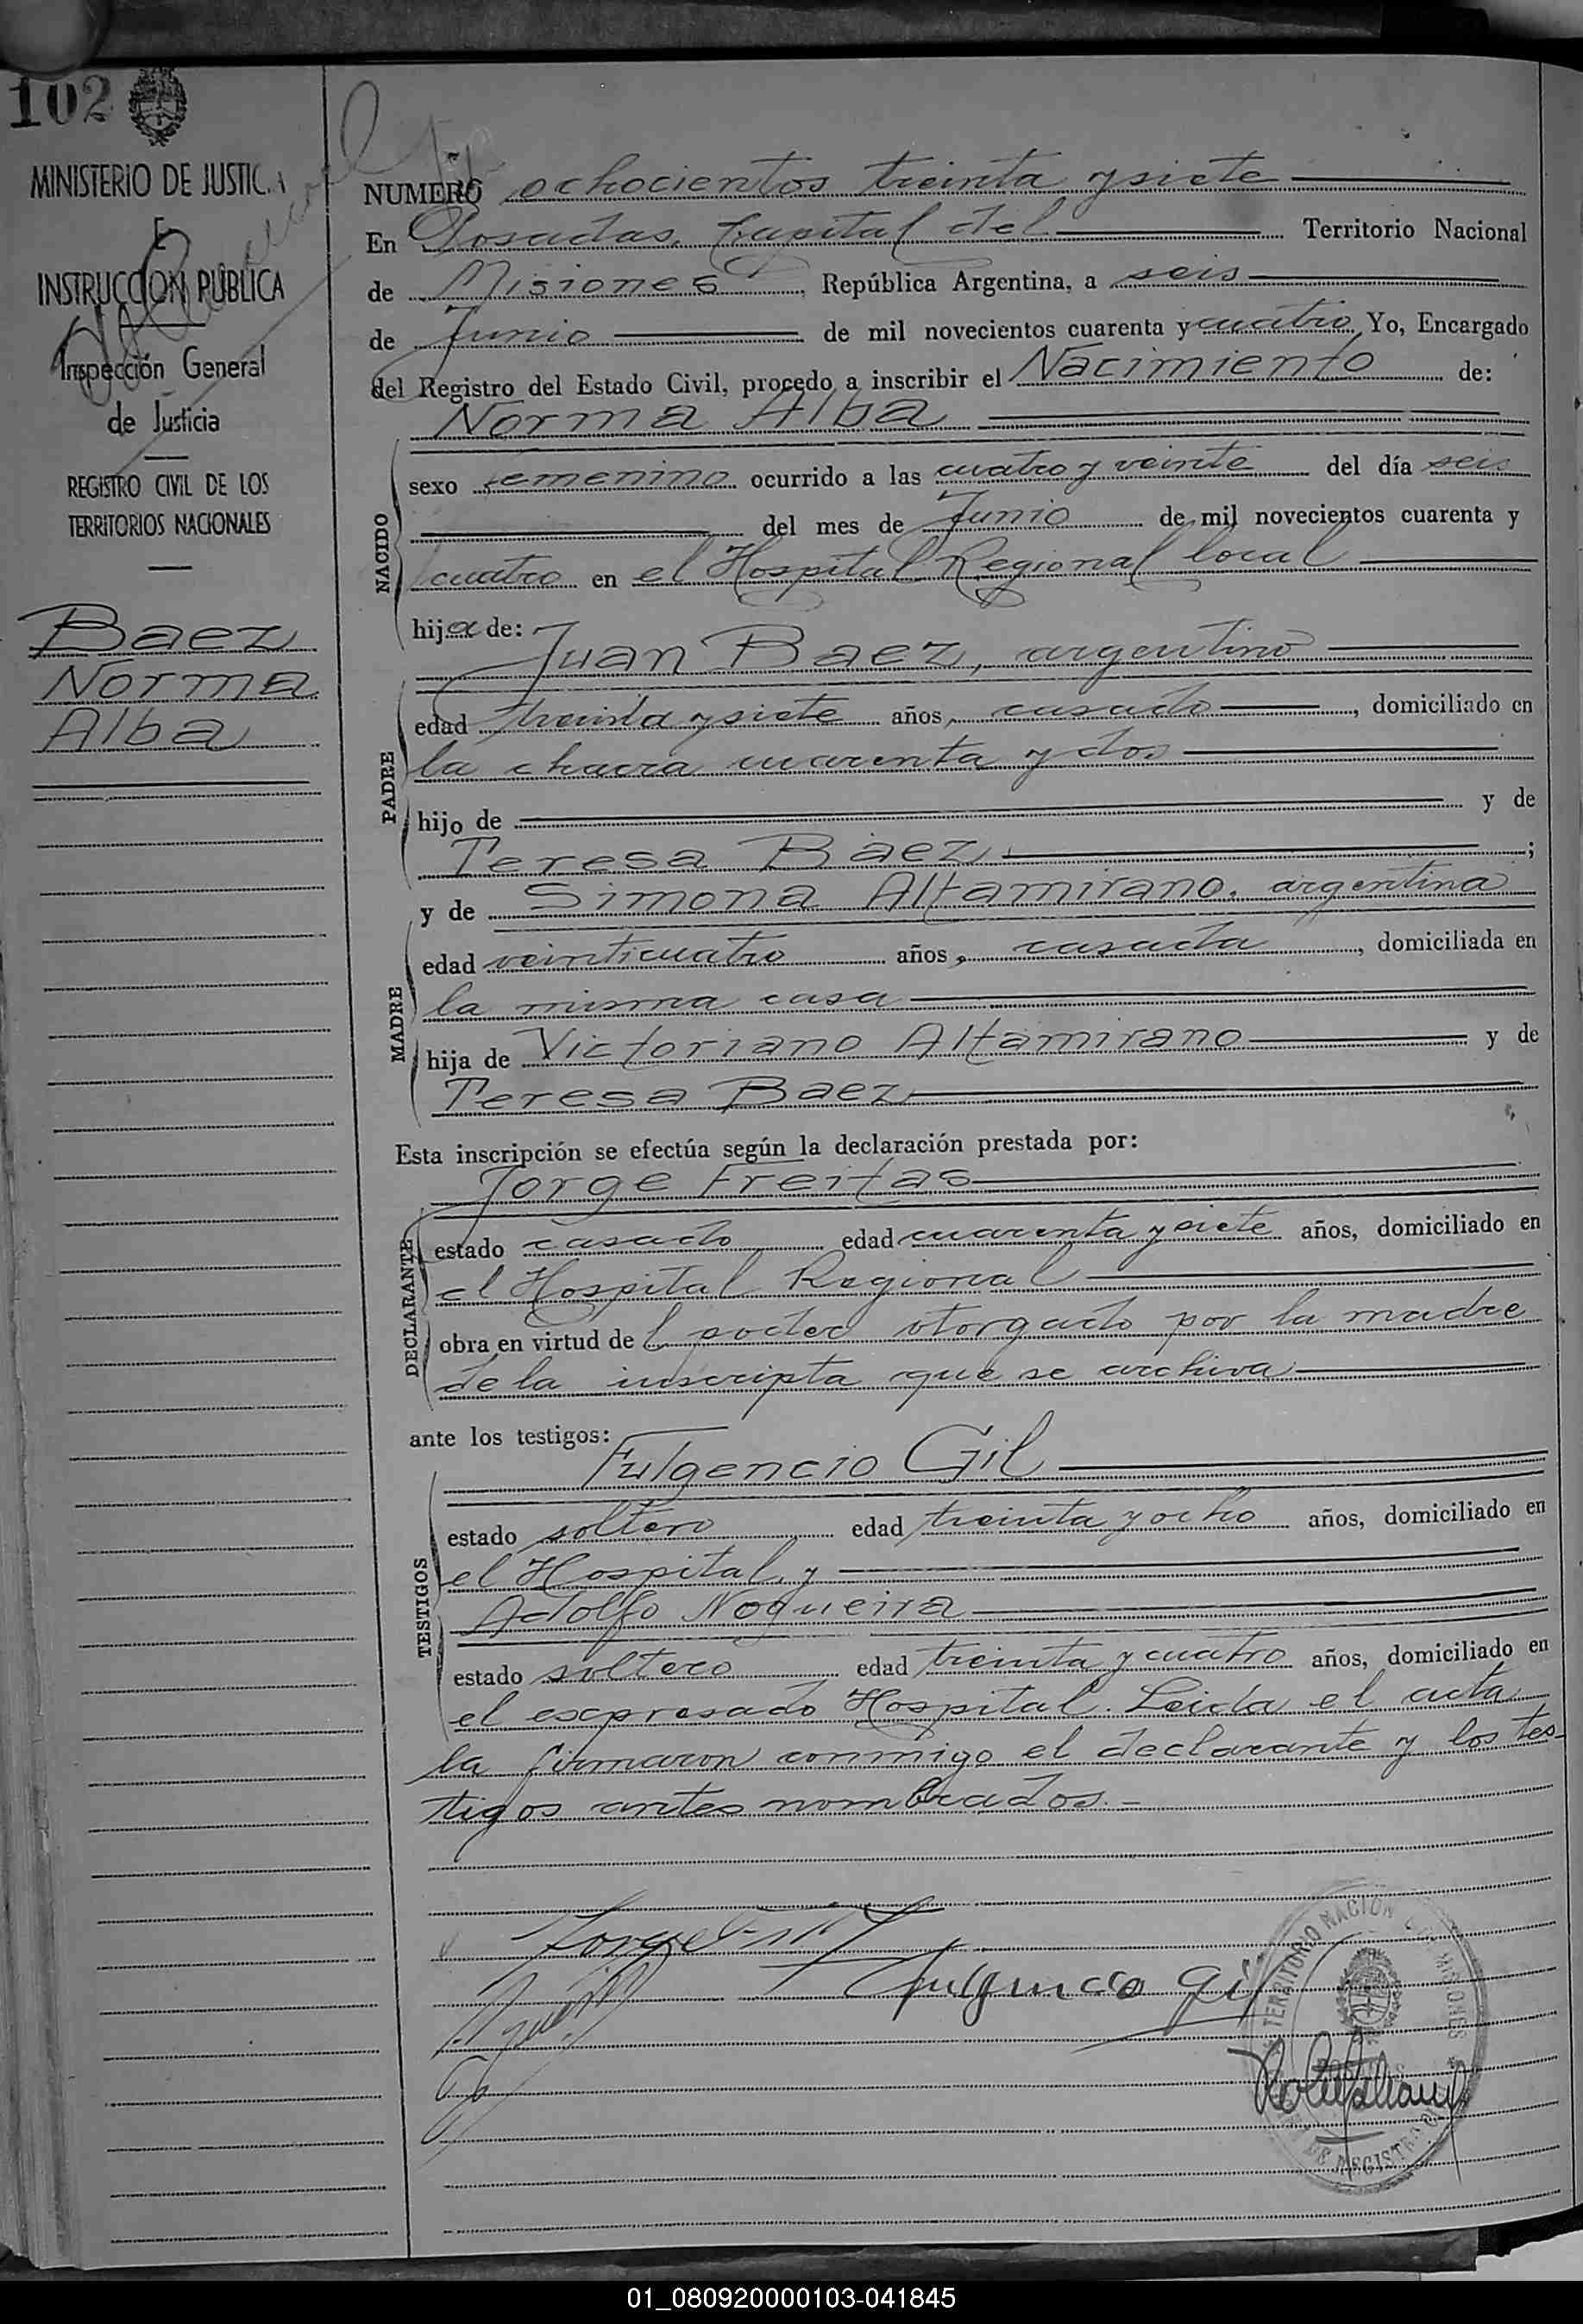 102
MINISTERIO DE JUSTICIA
E
INSTRUCCION PUBLICA
Inspección General
de Justicia
REGISTRO CIVIL DE LOS
TERRITORIOS NACIONALES
Baez
Norma
Alba
NUMERO ochocientos treinta y siete
En Posadas, Capital del Territorio Nacional
de Misiones, República Argentina, a seis
de Junio de mil novecientos cuarenta y cuatro Yo, Encargado
del Registro del Estado Civil, procedo a inscribir el Nacimiento de:
Norma Alba
NACIDO
sexo femenino ocurrido a las cuatro y veinte del día seis
del mes de Junio de mil novecientos cuarenta y
cuatro en el Hospital Regional local
hija de:
Juan Baez, argentino
PADRE
edad treinta y siete años, casado, domiciliado en
la chacra cuarenta y dos
hijo de y de
Teresa Baez;
y de Simona Altamirano, argentina
MADRE
edad veinticuatro años, casada, domiciliada en
la misma casa
hija de Victoriano Altamirano y de
Teresa Baez
Esta inscripción se efectúa según la declaración prestada por:
Jorge Freitas
DECLARANTE
estado casado edad cuarenta y siete años, domiciliado en
el Hospital Regional
obra en virtud del poder otorgado por la madre
de la inscripta que se archiva
ante los testigos:
Fulgencio Gil
TESTIGOS
estado soltero edad treinta y ocho años, domiciliado en
el Hospital, y
Adolfo Nogueira
estado soltero edad treinta y cuatro años, domiciliado en
el expresado Hospital. Leida el acta
la firmaron conmigo el declarante y los tes-
tigos antes nombrados.-
Fulgencio Gil
TERRITORIO NACIONAL MISIONES
01_080920000103-041845